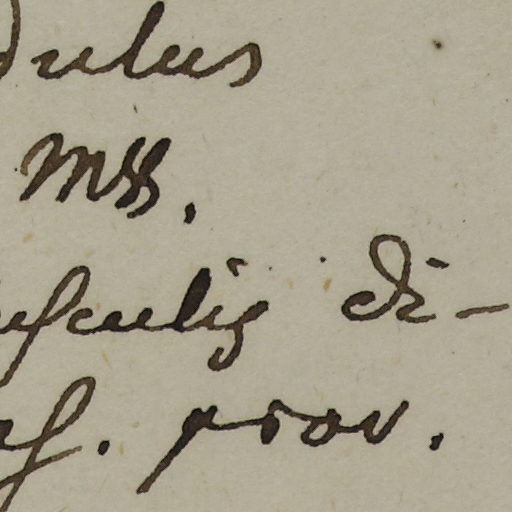 dulus
Mss.
usculis di-
as. prov.